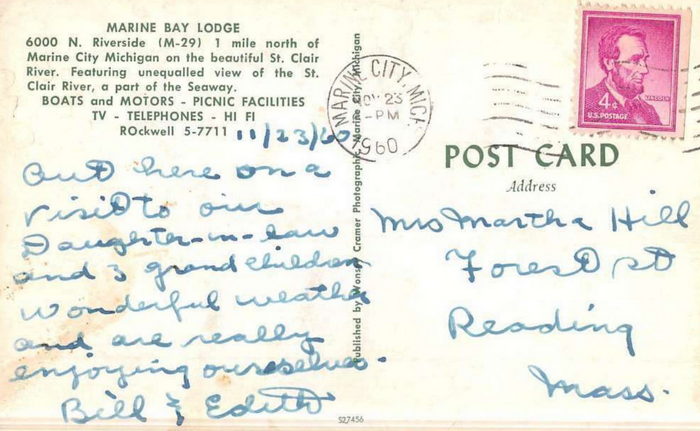 MARINE BAY LODGE
6000 N. Riverside (M-29) 1 mile north of
Marine City Michigan on the beautiful St. Clair
River. Featuring unequalled view of the St.
Clair River, a part of the Seaway.
BOATS and MOTORS - PICNIC FACILITIES
TV - TELEPHONES - HI FI
ROckwell 5-7711
11/23/60
Out here on a
visit to our
Daughter-in-law
and 3 grandchildren
wonderful weather
and are really
enjoying ourselves.
Bill & Edith
Published by Wonsey Cramer Photographic, Marine City, Michigan
MARINE CITY, MICH.
NOV 23
-PM
1960
4¢
LINCOLN
U.S. POSTAGE
POST CARD
Address
Mrs Martha Hill
Forest st
Reading
Mass.
S27456